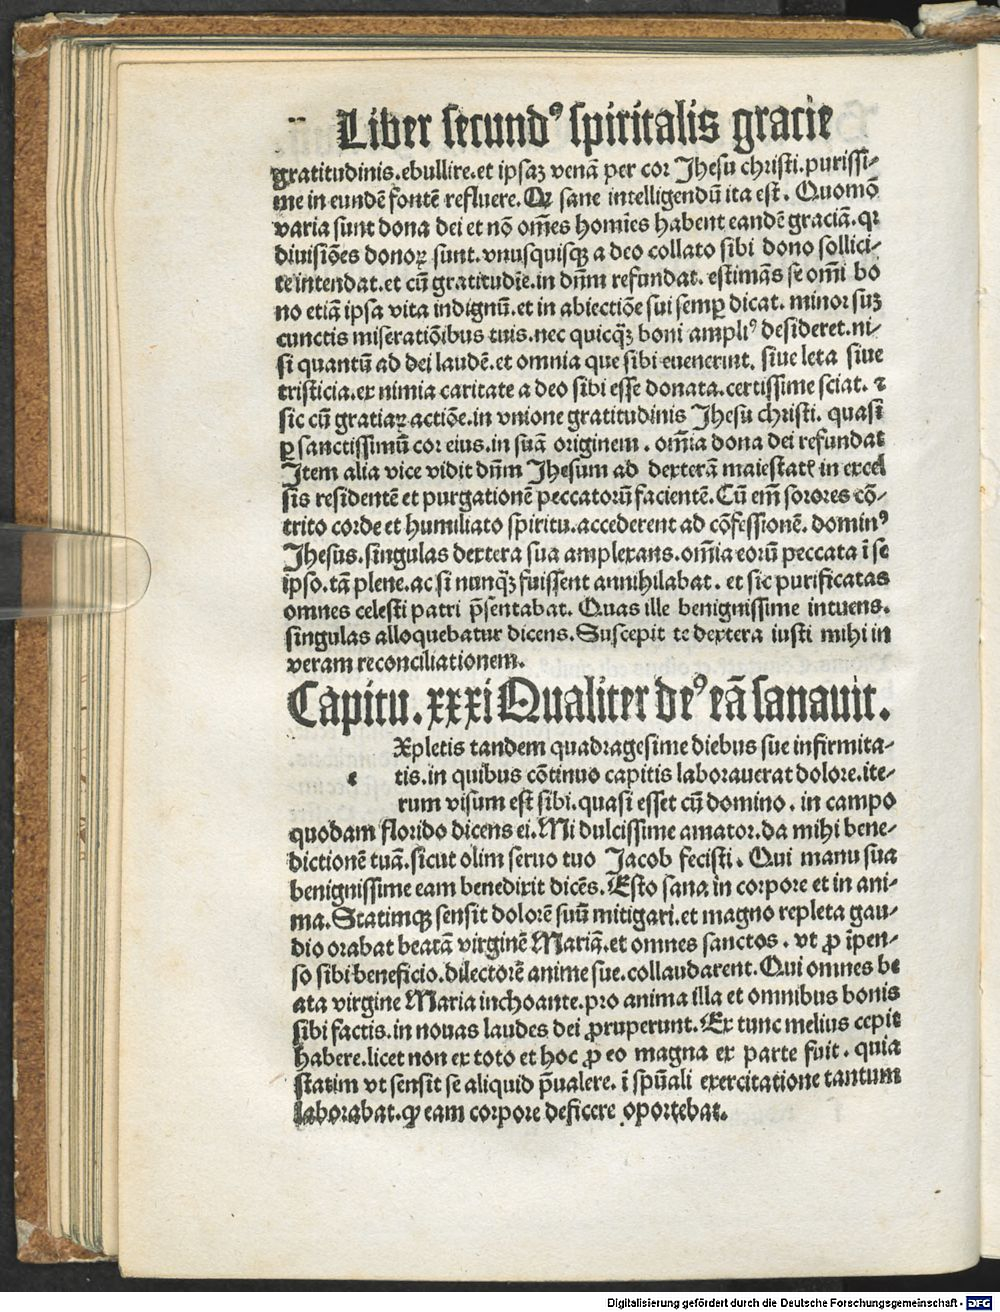 Liber secundꝰ spiritalis gracie
gratitudinis.ebullire.et ipsaꝫ venā per cor Jhesu christi.purissi-
me in eundē fontē refluere.Qꝛ sane intelligendū ita est. Quomō
varia sunt dona dei et nō oēs homīes habent eandē graciā.qꝛ
diuisiōes donoꝝ sunt.vnusquisqꝫ a deo collato sibi dono sollici-
te intendat.et cū gratitudīe.in dn̄m refundat. estimās se omī bo
no etiā ipsa vita indignū.et in abiectiōe sui semꝑ dicat. minor suꝫ
cunctis miseratiōibus tuis.nec quicqꝫ boni ampliꝰ desideret.ni-
si quantū ad dei laudē.et omnia que sibi euenerint. siue leta siue
tristicia.ex nimia caritate a deo sibi esse donata.certissime sciat. ⁊
sic cū gratiaꝝ actiōe.in vnione gratitudinis Jhesu christi. quasi
ꝑ sanctissimū cor eius.in suā originem. om̄ia dona dei refundat
Item alia vice vidit dn̄m Jhesum ad dexterā maiestatē in excel
sis residentē et purgationē peccatorū facientē.Cū em̄ sorores cō-
trito corde et humiliato spiritu.accederent ad cōfessionē. dominꝰ
Jhesus.singulas dextera sua amplexans.om̄ia eorū peccata ī se
ipso.tā plene.ac si nunqꝫ fuissent annihilabat. et sic purificatas
omnes celesti patri p̄sentabat. Quas ille benignissime intuens.
singulas alloquebatur dicens.Suscepit te dextera iusti mihi in
veram reconciliationem.
Capitu.xxxi Qualiter deꝰ eā sanauit.
Xpletis tandem quadragesime diebus sue infirmita-
e tis.in quibus cōtinuo capitis laborauerat dolore.ite-
rum visum est sibi.quasi esset cū domino. in campo
quodam florido dicens ei.Mi dulcissime amator.da mihi bene-
dictionē tuā.sicut olim seruo tuo Jacob fecisti. Qui manu sua
benignissime eam benedixit dicēs.Esto sana in corpore et in ani-
ma.Statimqꝫ sensit dolorē suū mitigari.et magno repleta gau-
dio orabat beatā virginē Mariā.et omnes sanctos. vt ꝓ īpen-
so sibi beneficio.dilectorē anime sue.collaudarent.Qui omnes be
ata virgine Maria inchoante.pro anima illa et omnibus bonis
sibi factis.in nouas laudes dei ꝓruperunt.Ex tunc melius cepit
habere.licet non ex toto et hoc ꝓ eo magna ex parte fuit. quia
statim vt sensit se aliquid p̄ualere. ī spūali exercitatione tantum
laborabat.ꝙ eam corpore deficere oportebat.
Digitalisierung gefördert durch die Deutsche Forschungsgemeinschaft - DFG